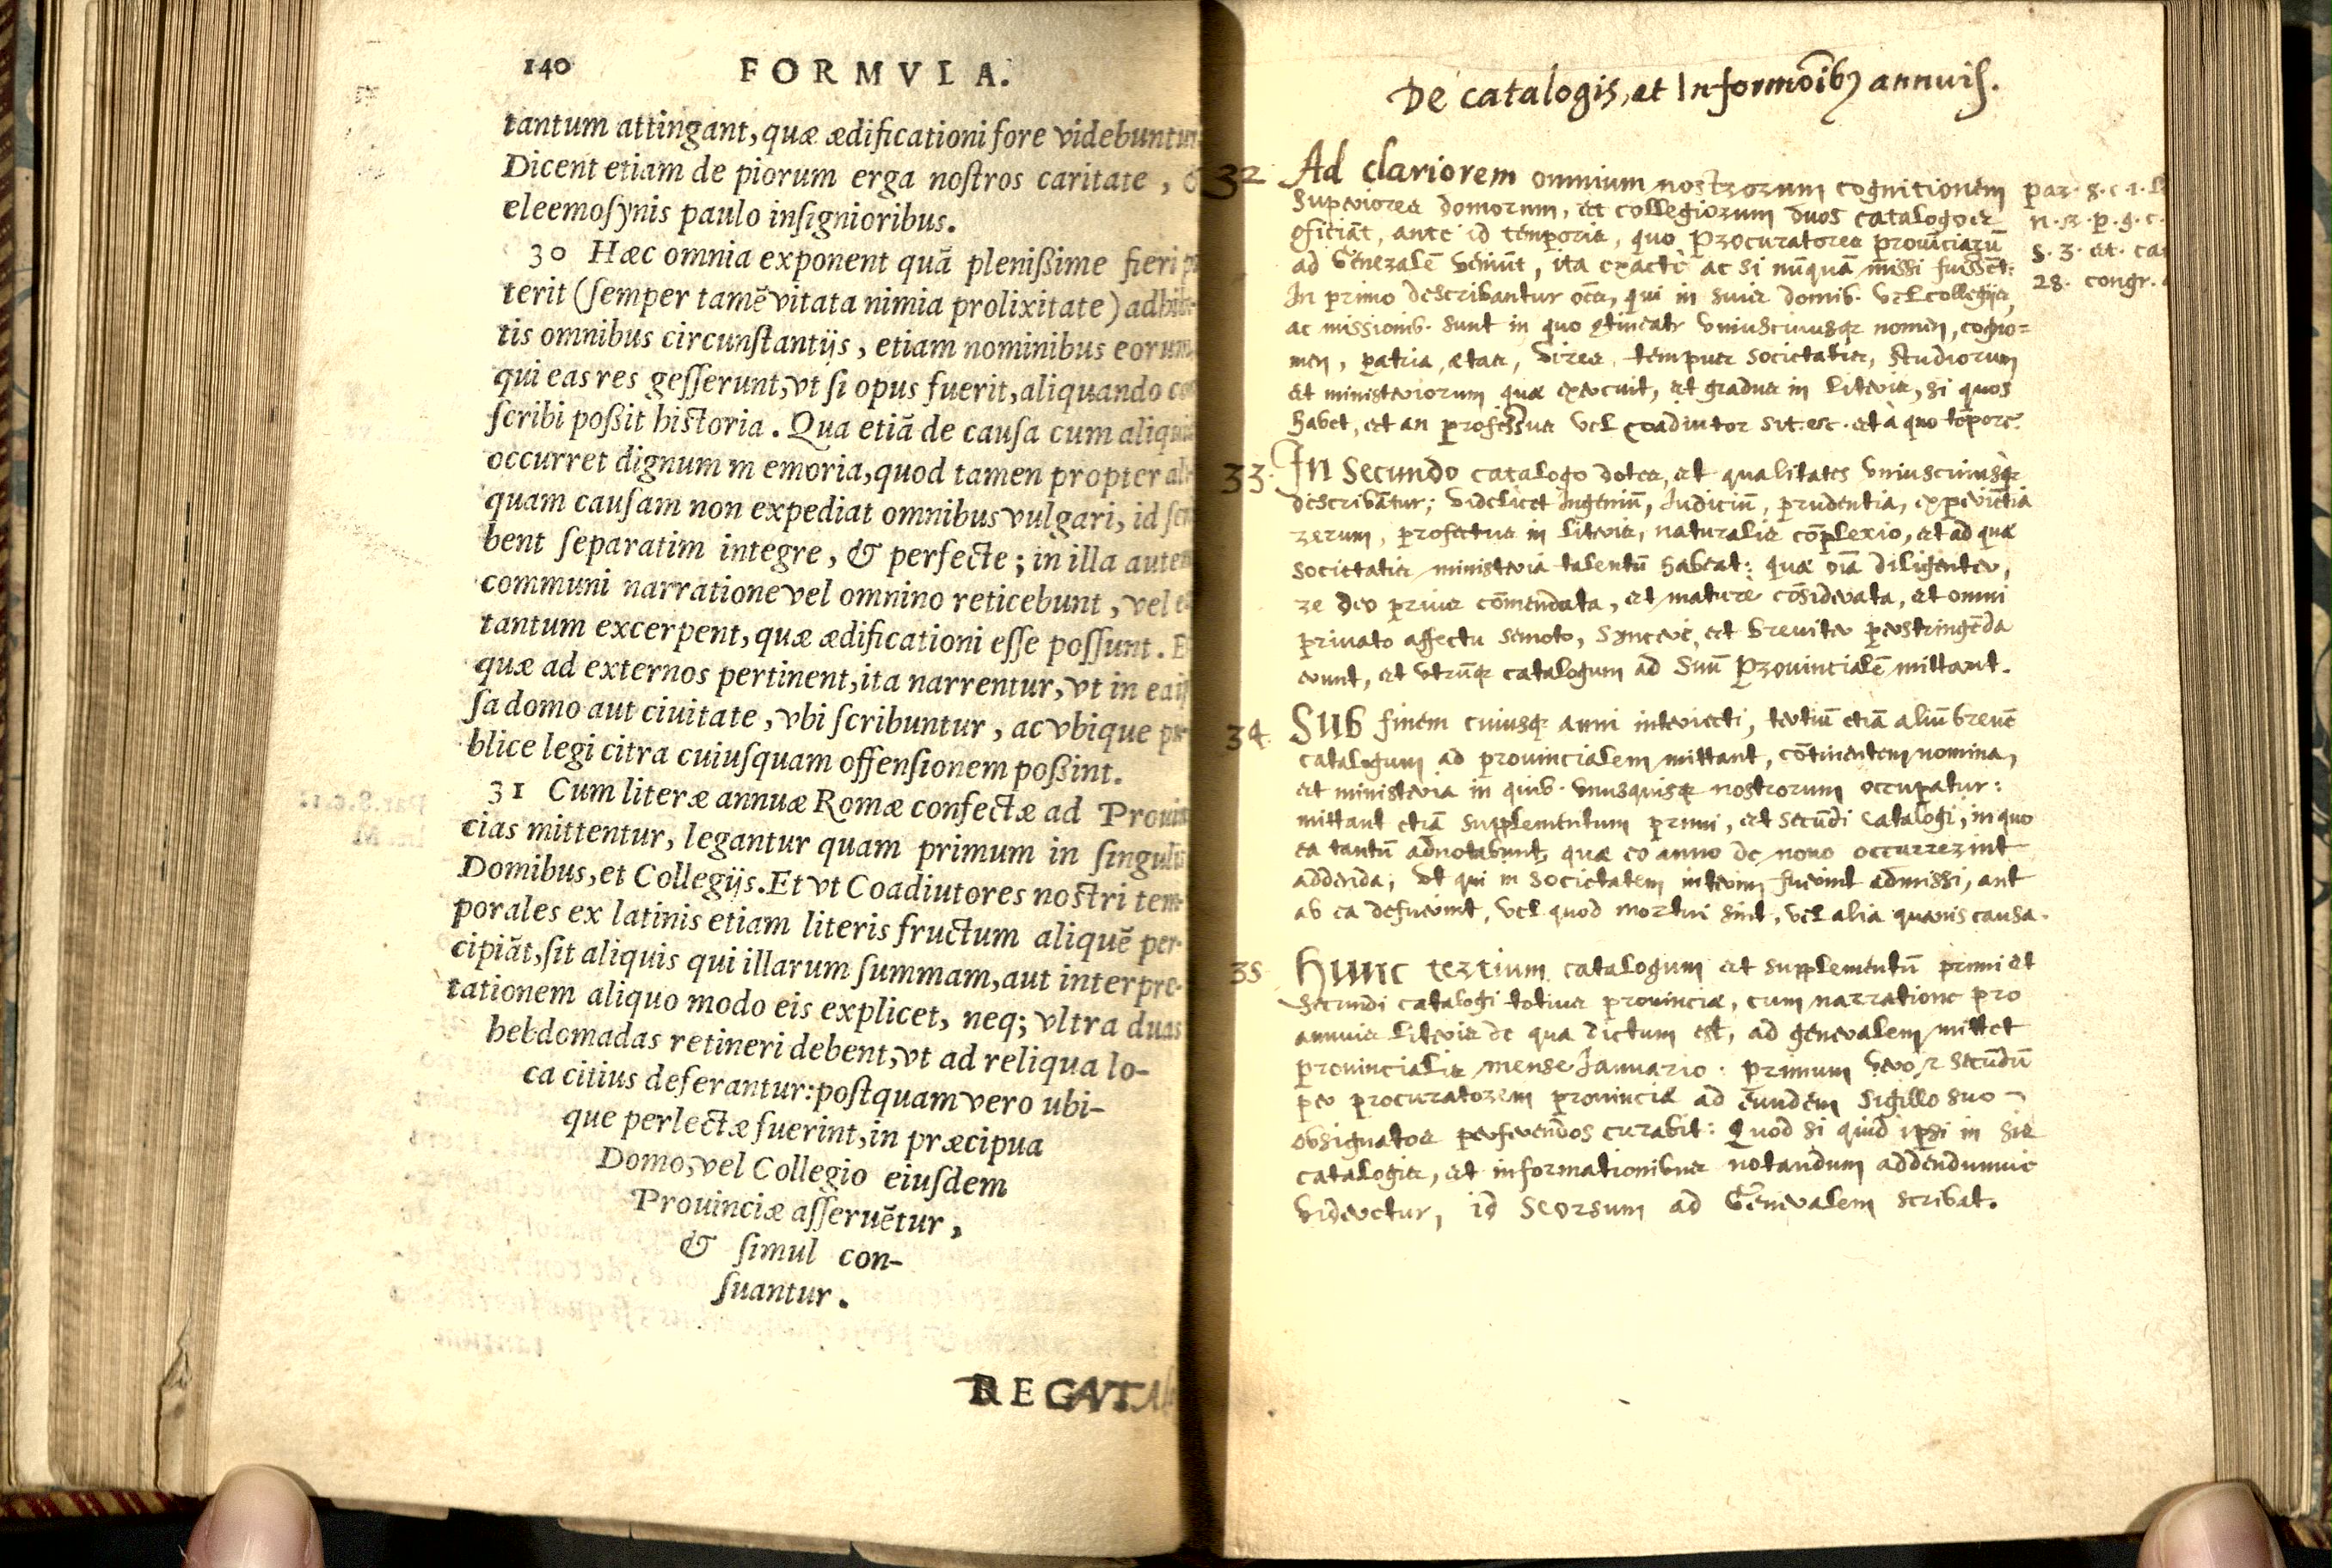 140 FORMVLA.
tantum attingant, quæ ædificationi fore videbuntur
Dicent etiam de piorum erga nostros caritate,
eleemosynis paulo insignioribus.
30 Hæc omnia exponent quã plenißime fieri
terit (semper tamẽ vitata nimia prolixitate) adhibi-
tis omnibus circunstantijs, etiam nominibus eorum,
qui eas res gesserunt, vt si opus fuerit, aliquando
scribi poßit historia. Qua etiã de causa cum aliquid
occurret dignum m emoria, quod tamen propter ali-
quam causam non expediat omnibus vulgari, id
bent separatim integre, & perfecte; in illa autem
communi narratione vel omnino reticebunt, vel
tantum excerpent, quæ ædificationi esse possunt.
quæ ad externos pertinent, ita narrentur, vt in
sa domo aut ciuitate, vbi scribuntur, ac vbique
blice legi citra cuiusquam offensionem poßint.
31 Cum literæ annuæ Romæ confectæ ad Prouin
cias mittentur, legantur quam primum in singulis
Domibus, et Collegijs. Et vt Coadiutores nostri tem-
porales ex latinis etiam literis fructum aliquẽ per-
cipiãt, sit aliquis qui illarum summam, aut interpre-
tationem aliquo modo eis explicet, neq; vltra duas
hebdomadas retineri debent, vt ad reliqua lo-
ca citius deferantur: postquam vero ubi-
que perlectæ fuerint, in præcipua
Domo, vel Collegio eiusdem
Prouinciæ asseruẽtur,
& simul con-
suantur.
De catalogis, et Informõibꝫ annuis.
32 Ad clariorem omnium nostrorum cognitionem
Superiores domorum, et collegiorum duos catalogos
cõficiãt, ante id temporis, quo Procuratores prouinciarũ
ad Generalẽ veniũt, ita exactè ac si nũquã missi fuissẽt:
In primo describantur oẽs, qui in suis domib. vel collegijs,
ac missionib. sunt in quo cõtineatr vniuscuiusqꝫ nomen, cogno=
men, patria, ætas, vires, tempus societatis, studiorum
et ministeriorum quæ exercuit, et gradus in literis, si quos
habet, et an professus vel coadiutor sit. etc. et à quo tẽpore.
par. 8. c. 1.
n. 3. p. 9. c.
s. 3. et.
28. congr.
33. In secundo catalogo dotes, et qualitates vniuscuiusqꝫ
describãtur; videlicet Ingeniũ, Iudiciũ, prudentia, experiẽtia
rerum, profectus in literis, naturalis cõplexio, et ad quæ
societatis ministeria talentũ habeat: quæ oĩa diligenter,
re deo prius cõmendata, et maturè cõsiderata, et omni
priuato affectu semoto, syncerè, et breuiter perstringẽda
erunt, et vtrũqꝫ catalogum ad suũ Prouincialẽ mittant.
34. Sub finem cuiusqꝫ anni interiecti, tertiũ etiã aliũ breuẽ
catalogum ad prouincialem mittant, cõtinentem nomina,
et ministeria in quib. vnusquisqꝫ nostrorum occupatur:
mittant etiã supplementum primi, et secũdi catalogi, in quo
ea tantũ adnotabunt, quæ eo anno de nouo occurrerint
addenda; vt qui in societatem interim fuerint admissi, aut
ab ea defuerint, vel quod mortui sint, vel alia quauis causa.
35 Hunc tertium catalogum et supplementũ primi et
secundi catalogi totius prouinciæ, cum narratione pro
annuis literis de qua dictum est, ad generalem mittet
prouincialis mense Ianuario: primum vero, et secũdũ
per procuratorem prouinciæ ad eundem sigillo suo
obsignatos perferendos curabit: Quod si quid ipsi in his
catalogis, et informationibus notandum addendumue
videretur, id seorsum ad Generalem scribat.